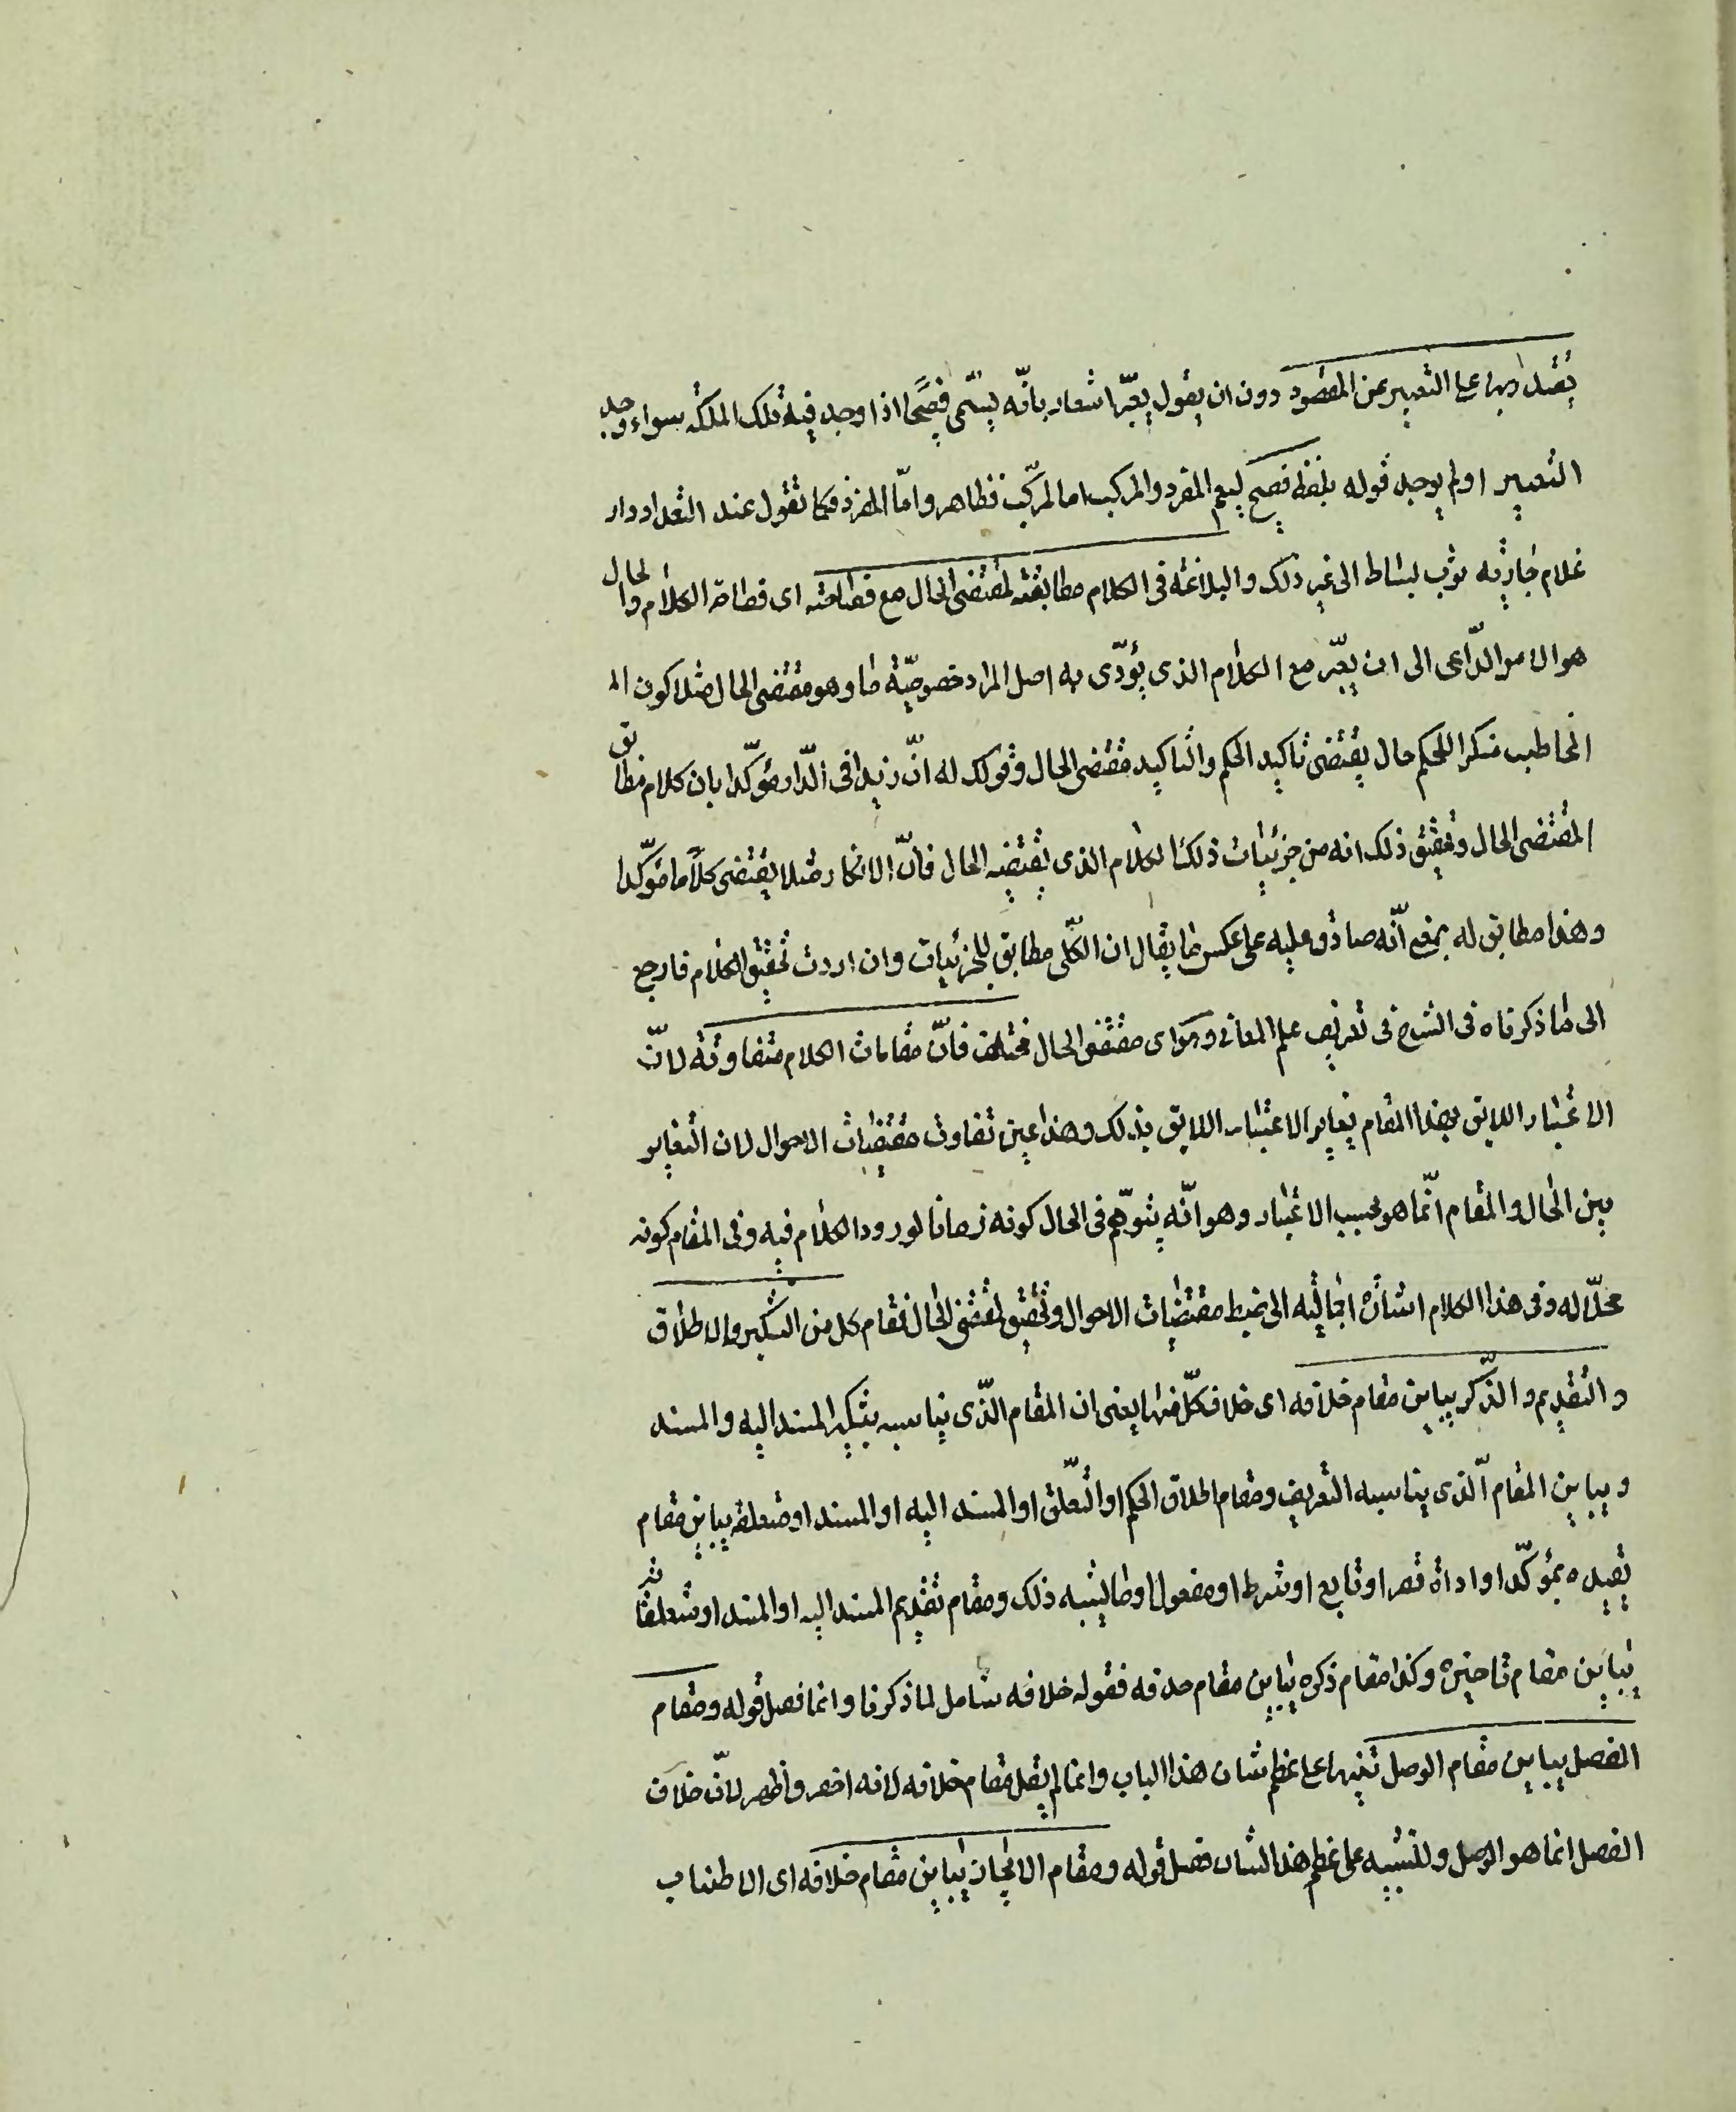 يقتدر بها على التعبير عن المقصود دون ان يقول يعبّر اشعار بانّه يسمّى فصيحًا اذا وجد فيه تلك الملكه سواء وجد
التعبير او لم يوجد قوله بلفظ فصيح ليعم المفرد والمركب اما المركّب فظاهر وامّا المفرد فكما تقول عند التعداد دار
غلام جاريه ثوب بساط الى غير ذلك والبلاغه فى الكلام مطابقته لمقتضى الحال مع فصاحته اى فصاحة الكلام والحال
هو الامر الدّاعى الى ان يعبّر مع الكلام الذى يؤدّى به اصل المراد خصوصيّة ما وهو مقتضى الحال مثلا كون الم
المخاطب منكرا للحكم حال يقتضى تاكيد الحكم والتاكيد مقتضى الحال وقولك له انّ زيدا فى الدّار مؤكّدا بان كلام مطابق
المقتضى الحال وتحقيق ذلك انه من جزئيات ذلك الكلام الذى يقتضيه الحال فانّ الانكار مثلا يقتضى كلامًا مؤكّدا
وهذا مطابق له بمعنى انّه صادق عليه على عكس ما يقال ان الكلّى مطابق للجزئيات وان اردت تحقيق الكلام فارجع
الى ما ذكرناه فى الشرح فى تعريف علم المعانى وهو اى مقتضى الحال مختلف فانّ مقامات الكلام متفاوته لانّ
الاعتبار اللايق بهذا المقام يغاير الاعتبار اللايق بذلك وهذا عين تفاوت مقتضيات الاحوال لان التغاير
بين الحال والمقام انّما هو بحسب الاعتبار وهو انّه يتوهّم فى الحال كونه زمانا لورود الكلام فيه وفى المقام كونه
محلّا له وفى هذا الكلام اشارة اجماليه الى ضبط مقتضيات الاحوال وتحقيق لمقتضى الحال فمقام كل من التنكير والاطلاق
والتقديم والذّكر يباين مقام خلافه اى خلاف كلّ منها يعنى ان المقام الذّى يناسبه بتنكير المسند اليه والمسند
ويباين المقام الّذى يناسبه التعريف ومقام اطلاق الحكم او التّعلّق او المسند اليه او المسند او متعلقه يباين مقام
تقييده بمؤكّد او اداة قصر او تابع او شرط او مفعول او ما يشبه ذلك ومقام تقديم المسند اليه او المسند او متعلقاته
يباين مقام تاخيره وكذا مقام ذكره يباين مقام حذفه فقوله خلافه شامل لما ذكرنا وانما فصل قوله ومقام
الفصل يباين مقام الوصل تنبيها على عظم شان هذا الباب وانما لم يقل مقام خلافه لانه اخصر واظهر لانّ خلاف
الفصل انما هو الوصل وللتنبيه على عظم هذا الشان فصل قوله ومقام الايجاز يباين مقام خلافه اى الاطناب